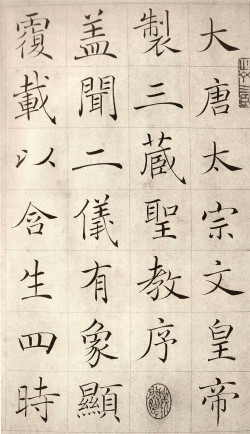 大唐太宗文皇帝
製三藏聖教序
蓋聞二儀有象顯
覆載以含生四時